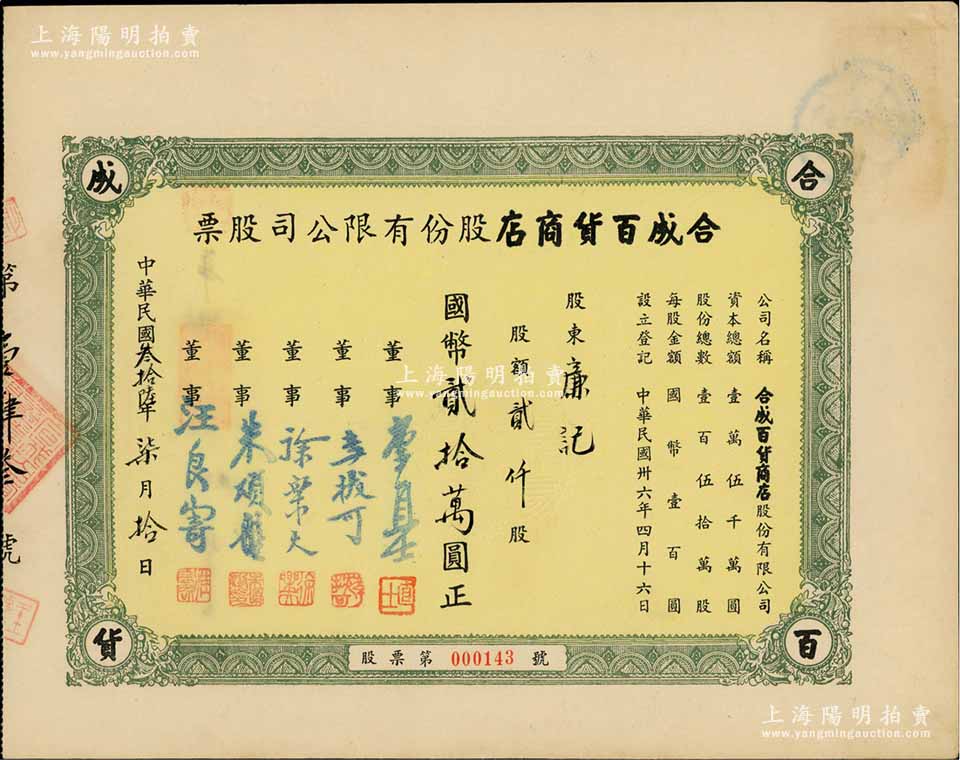 上海陽明拍賣
www.yangmingauction.com
合成百貨商店股份有限公司股票
合
成
百
貨
公司名稱 合成百貨商店股份有限公司
資本總額 壹萬伍千萬圓
股份總數 壹百伍拾萬股
每股金額 國幣壹百圓
設立登記 中華民國卅六年四月十六日
股東廉記
股額貳仟股
國幣貳拾萬圓正
董事
董事
董事
董事 朱順發
董事 汪良寄
中華民國叁拾陸年柒月拾日
第壹肆叁號
股票第 000143 號
上海陽明拍賣
www.yangmingauction.com
上海陽明拍賣
www.yangmingauction.com